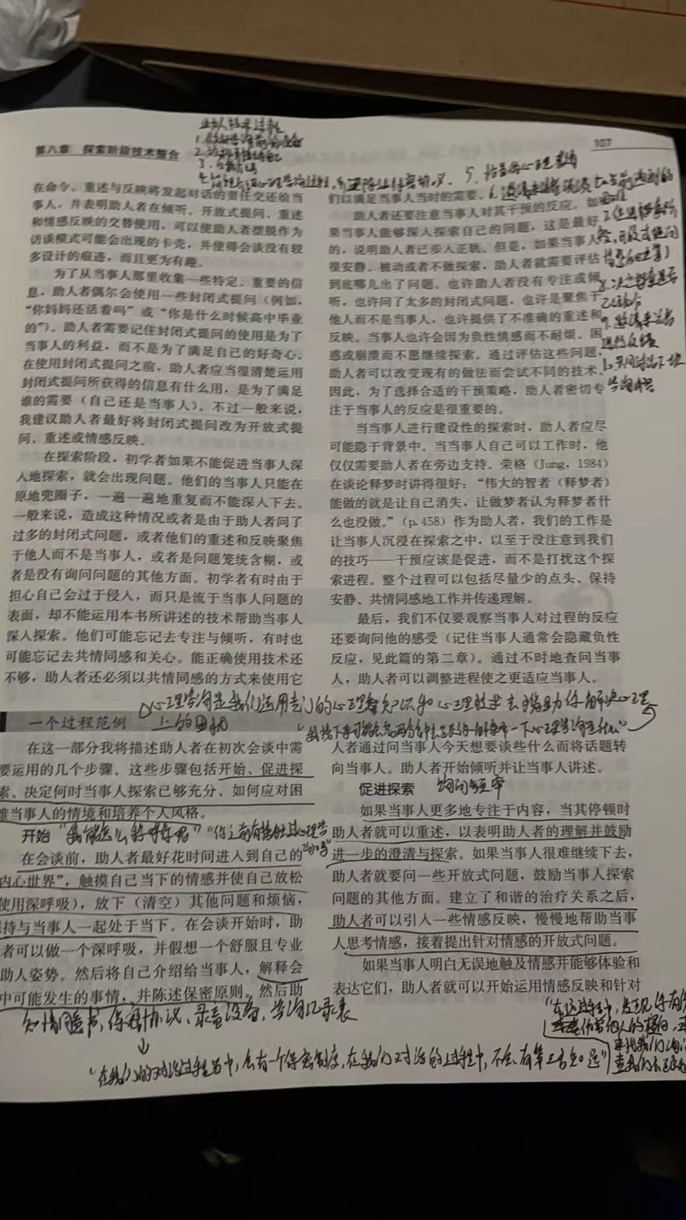 第八章 探索阶段技术整合
107
在命令。重述与反映将发起对话的责任交还给当
事人，并表明助人者在倾听。开放式提问、重述
和情感反映的交替使用，可以使助人者摆脱作为
访谈模式可能会出现的卡壳，并使得会谈没有较
多设计的痕迹，而且更为有趣。
为了从当事人那里收集一些特定、重要的信
息，助人者偶尔会使用一些封闭式提问（例如，
“你妈妈还活着吗”或“你是什么时候高中毕业
的”）。助人者需要记住封闭式提问的使用是为了
当事人的利益，而不是为了满足自己的好奇心。
在使用封闭式提问之前，助人者应当很清楚运用
封闭式提问所获得的信息有什么用，是为了满足
谁的需要（自己还是当事人）。不过一般来说，
我建议助人者最好将封闭式提问改为开放式提
问、重述或情感反映。
在探索阶段，初学者如果不能促进当事人深
入地探索，就会出现问题。他们的当事人只能在
原地兜圈子，一遍一遍地重复而不能深入下去。
一般来说，造成这种情况或者是由于助人者问了
过多的封闭式问题，或者他们的重述和反映聚焦
于他人而不是当事人，或者是问题笼统含糊，或
者是没有询问问题的其他方面。初学者有时由于
担心自己会过于侵人，而只是流于当事人问题的
表面，却不能运用本书所讲述的技术帮助当事人
深入探索。他们可能忘记去专注与倾听，有时也
可能忘记去共情同感和关心。能正确使用技术还
不够，助人者还必须以共情同感的方式来使用它
们以满足当事人当时的需要。
助人者还要注意当事人对其干预的反应。如
果当事人能够深人探索自己的问题，这是最好
的，说明助人者已步人正轨。但是，如果当事人
很安静、被动或者不做探索，助人者就需要评估
到底哪儿出了问题。也许助人者没有专注或倾
听，也许问了太多的封闭式问题，也许是聚焦于
他人而不是当事人，也许提供了不准确的重述和
反映。当事人也许会因为负性情感而不耐烦、困
惑或崩溃而不愿继续探索。通过评估这些问题，
助人者可以改变现有的做法而尝试不同的技术。
因此，为了选择合适的干预策略，助人者密切专
注于当事人的反应是很重要的。
当当事人进行建设性的探索时，助人者应尽
可能隐于背景中。当当事人自己可以工作时，他
仅仅需要助人者在旁边支持。荣格（Jung，1984）
在谈论释梦时讲得很好：“伟大的智者（释梦者）
能做的就是让自己消失，让做梦者认为释梦者什
么也没做。”（p.458）作为助人者，我们的工作是
让当事人沉浸在探索之中，以至于没注意到我们
的技巧——干预应该是促进，而不是打扰这个探
索进程。整个过程可以包括尽量少的点头、保持
安静、共情同感地工作并传递理解。
最后，我们不仅要观察当事人对过程的反应
还要询问他的感受（记住当事人通常会隐藏负性
反应，见此篇的第二章）。通过不时地查问当事
人，助人者可以调整进程使之更适应当事人。
一个过程范例
在这一部分我将描述助人者在初次会谈中需
要运用的几个步骤。这些步骤包括开始、促进探
索、决定何时当事人探索已够充分、如何应对困
难当事人的情境和培养个人风格。
开始
在会谈前，助人者最好花时间进入到自己的
内心世界”，触摸自己当下的情感并使自己放松
使用深呼吸），放下（清空）其他问题和烦恼，
持与当事人一起处于当下。在会谈开始时，助
者可以做一个深呼吸，并假想一个舒服且专业
助人姿势。然后将自己介绍给当事人，解释会
中可能发生的事情，并陈述保密原则。然后助
人者通过问当事人今天想要谈些什么而将话题转
向当事人。助人者开始倾听并让当事人讲述。
促进探索
如果当事人更多地专注于内容，当其停顿时
助人者就可以重述，以表明助人者的理解并鼓励
进一步的澄清与探索。如果当事人很难继续下去，
助人者就要问一些开放式问题，鼓励当事人探索
问题的其他方面。建立了和谐的治疗关系之后，
助人者可以引入一些情感反映，慢慢地帮助当事
人思考情感，接着提出针对情感的开放式问题。
如果当事人明白无误地触及情感并能够体验和
表达它们，助人者就可以开始运用情感反映和针对
知情同意书，保密协议，录音设备，咨询记录表
“在我们的对话过程当中，会有一个保密制度，在我们对话的过程中，不会有第三者知道”